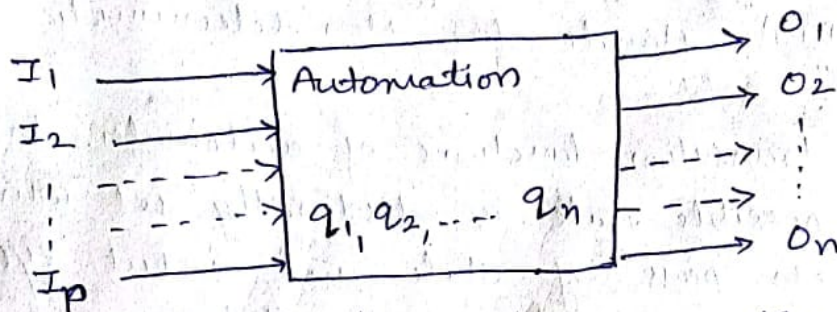 I1
I2
Ip
Automation
q1, q2, .... qn
O1
O2
On